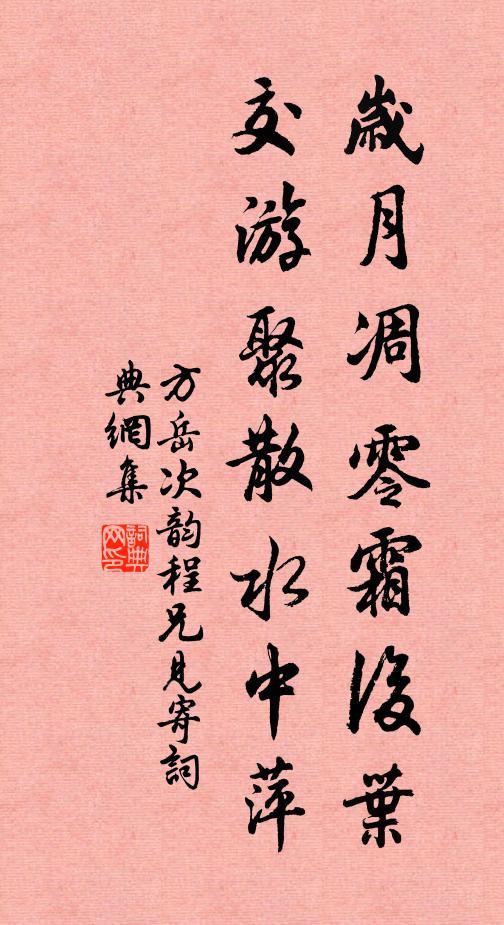 歲月凋零霜後葉
交游聚散水中萍
方岳次韵程兄見寄詞
典網集
詞典网印